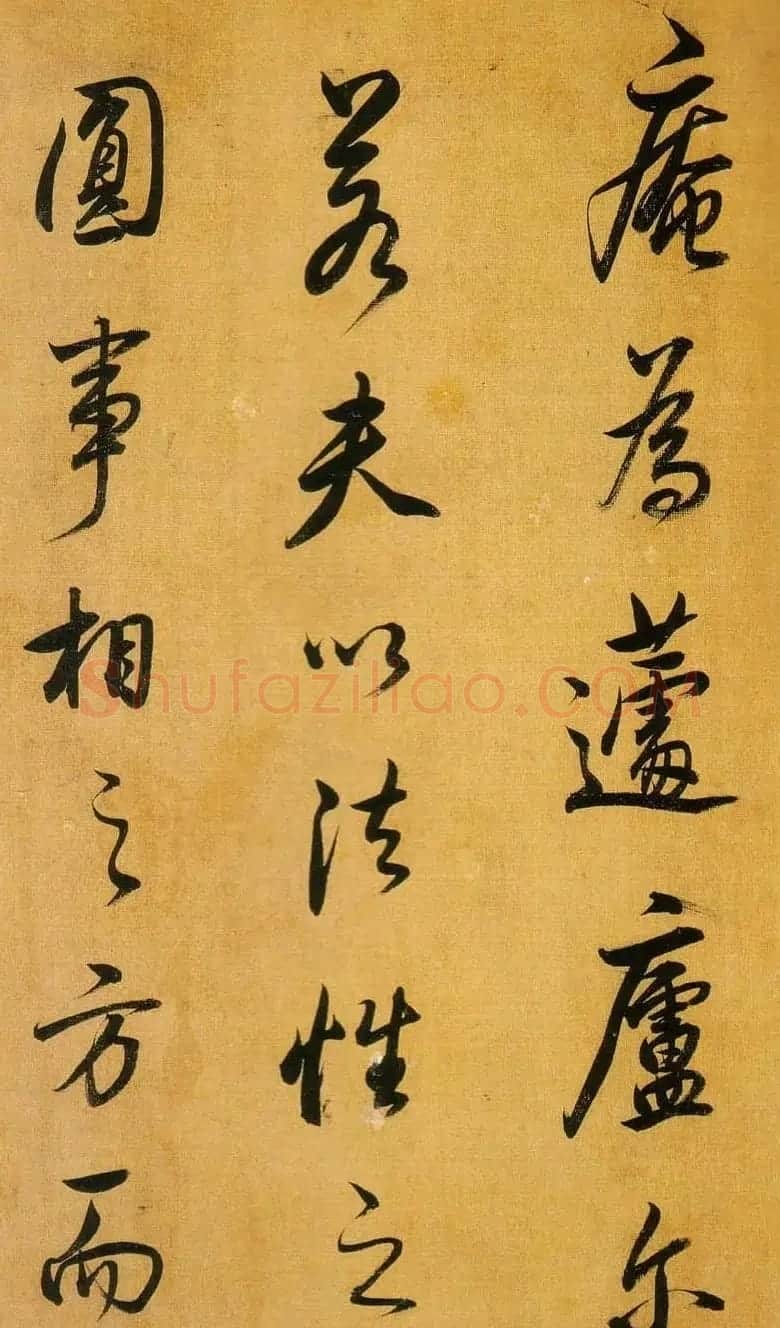 庵為蘧廬尔
若夫以法性之
圓事相之方而
Shufaziliao.COM